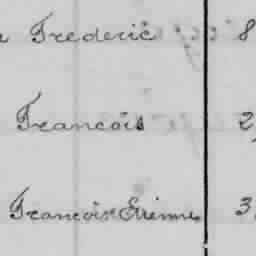 Frederic 8
Francois 2
Francois Etienne 3